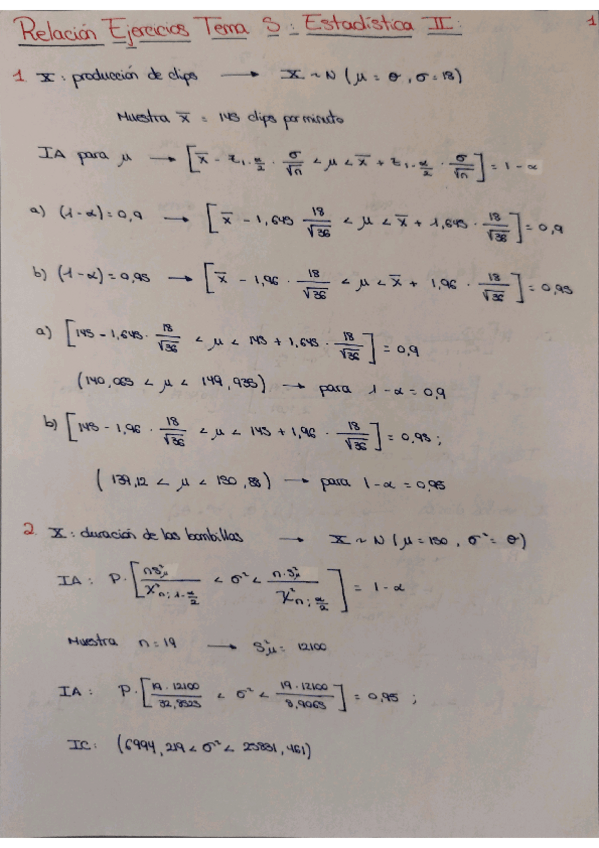 Relación Ejercicios Tema 5 : Estadística II : 1
1. X : producción de clips ⟶ X ~ N ( μ = θ , σ = 18 )
Muestra x̄ = 145 clips por minuto
IA para μ ⟶ [ x̄ - z₁₋α/₂ · σ/√n < μ < x̄ + z₁₋α/₂ · σ/√n ] = 1 - α
a) (1-α) = 0,9 ⟶ [ x̄ - 1,645 18/√36 < μ < x̄ + 1,645 · 18/√36 ] = 0,9
b) (1-α) = 0,95 ⟶ [ x̄ - 1,96 · 18/√36 < μ < x̄ + 1,96 · 18/√36 ] = 0,95
a) [ 145 - 1,645 · 18/√36 < μ < 145 + 1,645 · 18/√36 ] = 0,9
( 140,065 < μ < 149,935 ) ⟶ para 1-α = 0,9
b) [ 145 - 1,96 · 18/√36 < μ < 145 + 1,96 · 18/√36 ] = 0,95 ;
( 139,12 < μ < 150,88 ) ⟶ para 1-α = 0,95
2. X : duración de las bombillas ⟶ X ~ N ( μ = 150 , σ² = θ )
IA : P · [ nS²μ / χ²n ; 1-α/2 < σ² < n·S²μ / χ²n ; α/2 ] = 1 - α
Muestra n = 19 ⟶ S²μ = 12100
IA : P · [ 19 · 12100 / 32,8523 < σ² < 19 · 12100 / 8,9065 ] = 0,95 ;
IC : ( 6994,219 < σ² < 25831,461 )